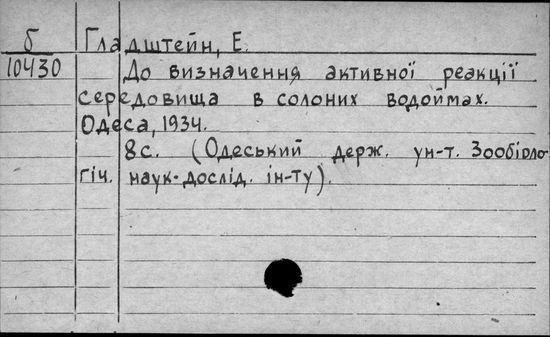 б Гладштейн, Е.
10430 До визначення активної реакції
середовища в солоних водоймах.
Одеса, 1934.
8с. (Одеський держ. ун-т. Зообіоло-
гіч. наук-дослід. ін-ту).